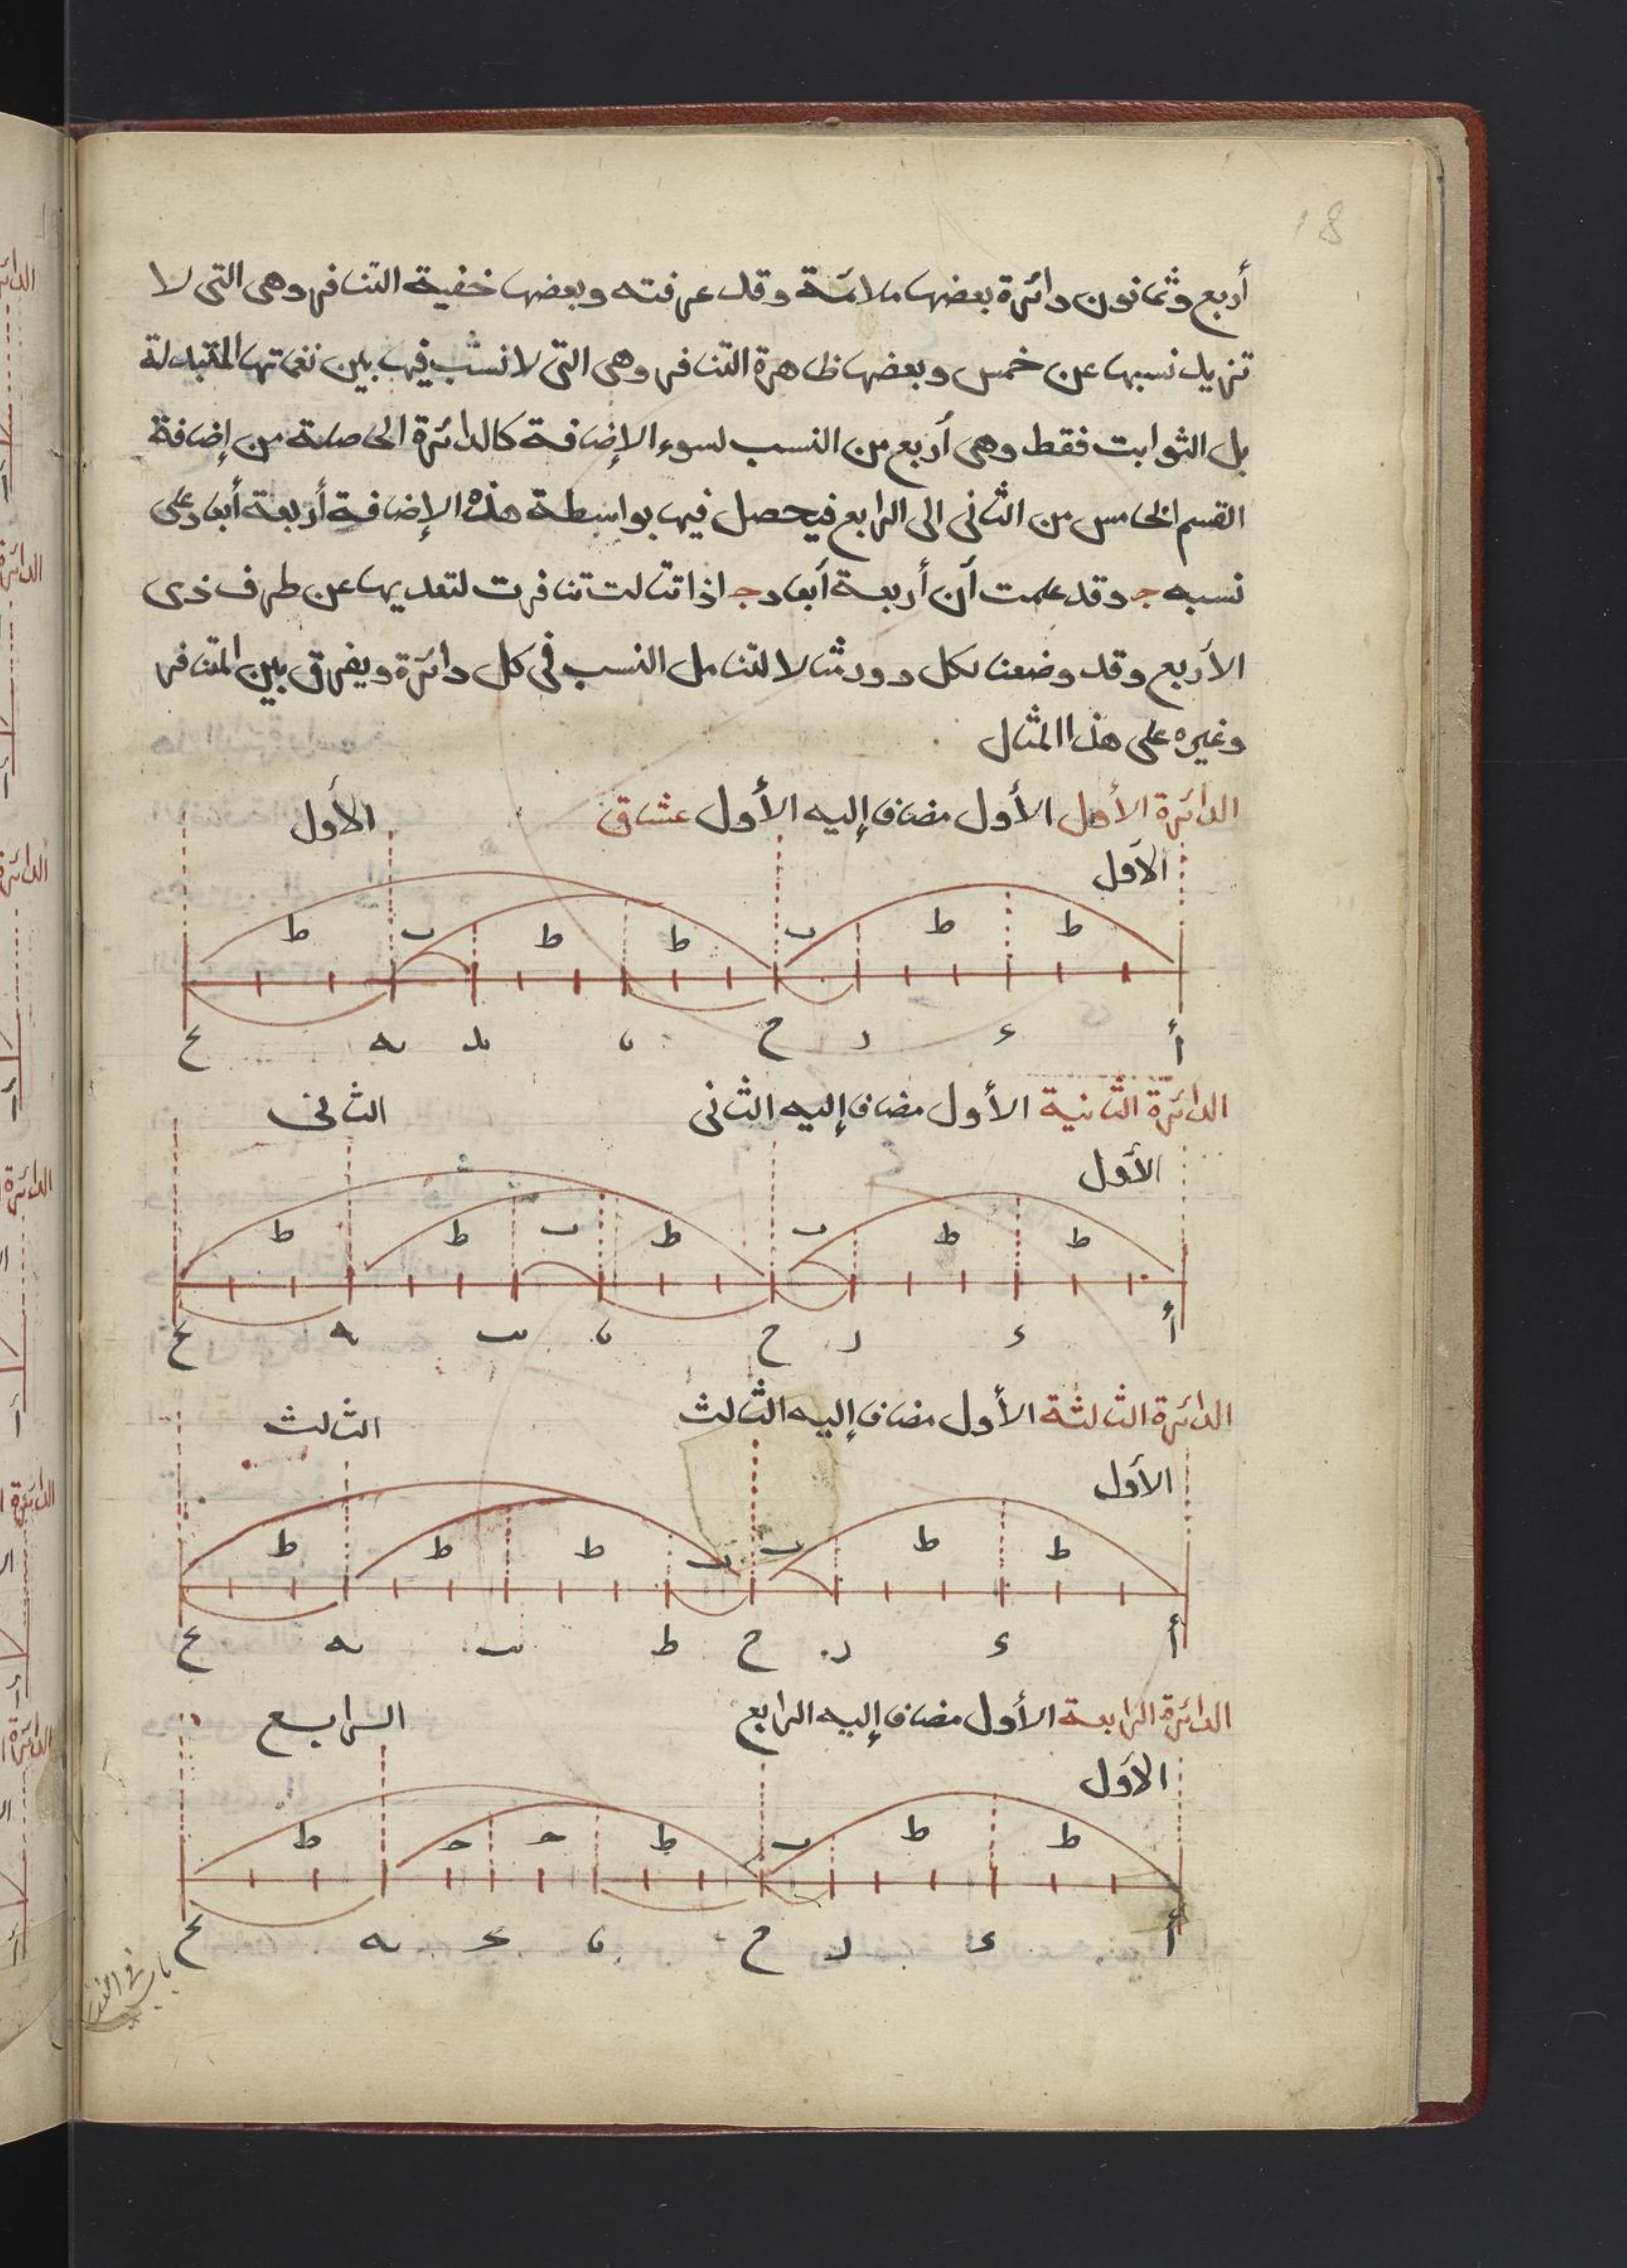 18
أربع وثمانون دائرة بعضها ملائمة وقد عرفته وبعضها خفية التنافر وهى التى لا
تزيد نسبها عن خمس وبعضها ظاهرة التنافر وهى التى لا نسب فيها بين نغماتها المتبدلة
بل الثوابت فقط وهى أربع من النسب لسوء الإضافة كالدائرة الحاصلة من إضافة
القسم الخامس من الثانى الى الرابع فيحصل فيها بواسطة هذه الإضافة أربعة أبعاد على
نسبه ج وقد علمت أن أربعة أبعاد ج اذا تتالت تنافرت لتعديها عن طرف ذى
الأربع وقد وضعنا لكل دور مثالا لتتامل النسب فى كل دائرة ويفرق بين المتنافر
وغيره على هذا المثال
الدائرة الأولى الأول مضاف إليه الأول عشاق
الأول
الأول
ط ط ب ط ط ب ط
أ د ز ح يا يد يه يح
الدائرة الثانية الأول مضاف إليه الثانى
الثانى
الأول
ط ط ب ط ب ط ط
أ د ز ح يا يب يه يح
الدائرة الثالثة الأول مضاف إليه الثالث
الثالث
الأول
ط ط ب ب ط ط ط
أ د ز ح ط يب يه يح
الدائرة الرابعة الأول مضاف إليه الرابع
الرابع
الأول
ط ط ب ط ج ج ط
أ د ز ح يا يج يه يح